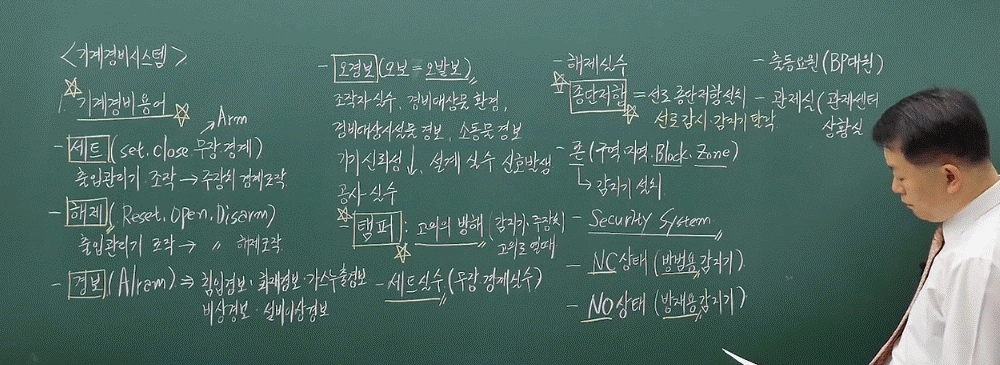 <기계경비시스템>
기계경비용어
Arm
- 세트 (set. close 무장 경계)
출입관리기 조작 → 주장치 경계조작
- 해제 (Reset. Open. Disarm)
출입관리기 조작 → 〃 해제조작
- 경보 (Alram) ⇒ 침입경보·화재경보·가스누출경보
비상경보·설비이상경보
- 오경보 (오보 = 오발보)
조작자 실수, 경비대상물 환경,
경비대상시설물 경보, 소동물 경보
기기신뢰성↓, 설계 실수 신호발생
공사실수
- 탬퍼 : 고의의 방해 감지기·주장치
고의로 열때
- 세트실수 (무장 경계실수)
- 해제실수
- 종단저항 = 선로 종단저항설치
선로감시·감지기 탈락
- 존 (구역·지역·Block·Zone)
↳ 감지기 설치
- Security System
- NC상태 (방범용감지기)
- NO상태 (방재용감지기)
- 출동요원 (BP대원)
- 관제실 (관제센터
상황실